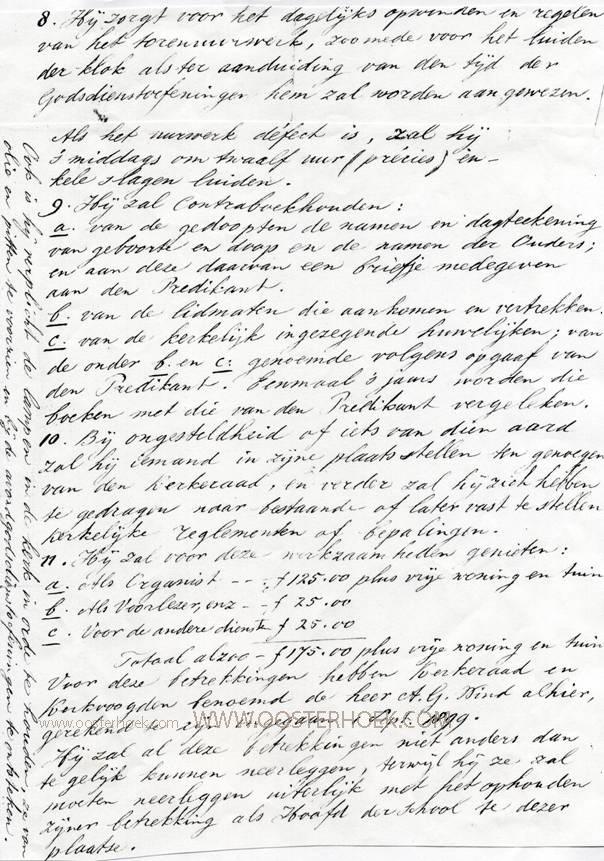 8. Hij zorgt voor het dagelijks opwinden en regelen
van het torenuurwerk, zoomede voor het luiden
der klok als ter aanduiding van den tijd der
Godsdienstoefeningen hem zal worden aangewezen.
Als het uurwerk defect is, zal hij
's middags om twaalf uur (précies) en-
kele slagen luiden.
9. Hij zal Contraboekhouden:
a. van de gedoopten de namen en dagteekening
van geboorte en doop en de namen der Ouders;
en aan deze daarvan een briefje medegeven
aan den Predikant.
b. van de lidmaten die aankomen en vertrekken.
c. van de kerkelijk ingezegende huwelijken; van
de onder b. en c. genoemde volgens opgaaf van
den Predikant. Eenmaal 's jaars worden die
boeken met die van den Predikant vergeleken.
10. Bij ongesteldheid of iets van dien aard
zal hij iemand in zijne plaats stellen ten genoegen
van den Kerkeraad, en verder zal hij zich hebben
te gedragen naar bestaande of later vast te stellen
kerkelijke reglementen of bepalingen.
11. Hij zal voor deze werkzaamheden genieten:
a. Als Organist -- - f 125.00 plus vrije woning en tuin
b. Als Voorlezer, enz -- f 25.00
c. Voor de andere dienste f 25.00
Totaal alzoo - f 175.00 plus vrije woning en tuin
Voor deze betrekkingen hebben Kerkeraad en
Kerkvoogden benoemd de heer A.G. Hind alhier,
gerekend te
Hij zal al deze betrekkingen niet anders dan
te gelijk kunnen neerleggen, terwijl hij ze zal
moeten neerleggen uiterlijk met het ophouden
zijner betrekking als Hoofd der School te dezer
plaatse.
Ook is hij verplicht de lampen in de kerk in orde te houden, ze van
olie en pitten te voorzien en bij de avondgodsdienstoefeningen te ontsteken.
www.oosterhoek.com
WWW.OOSTERHOEK.COM